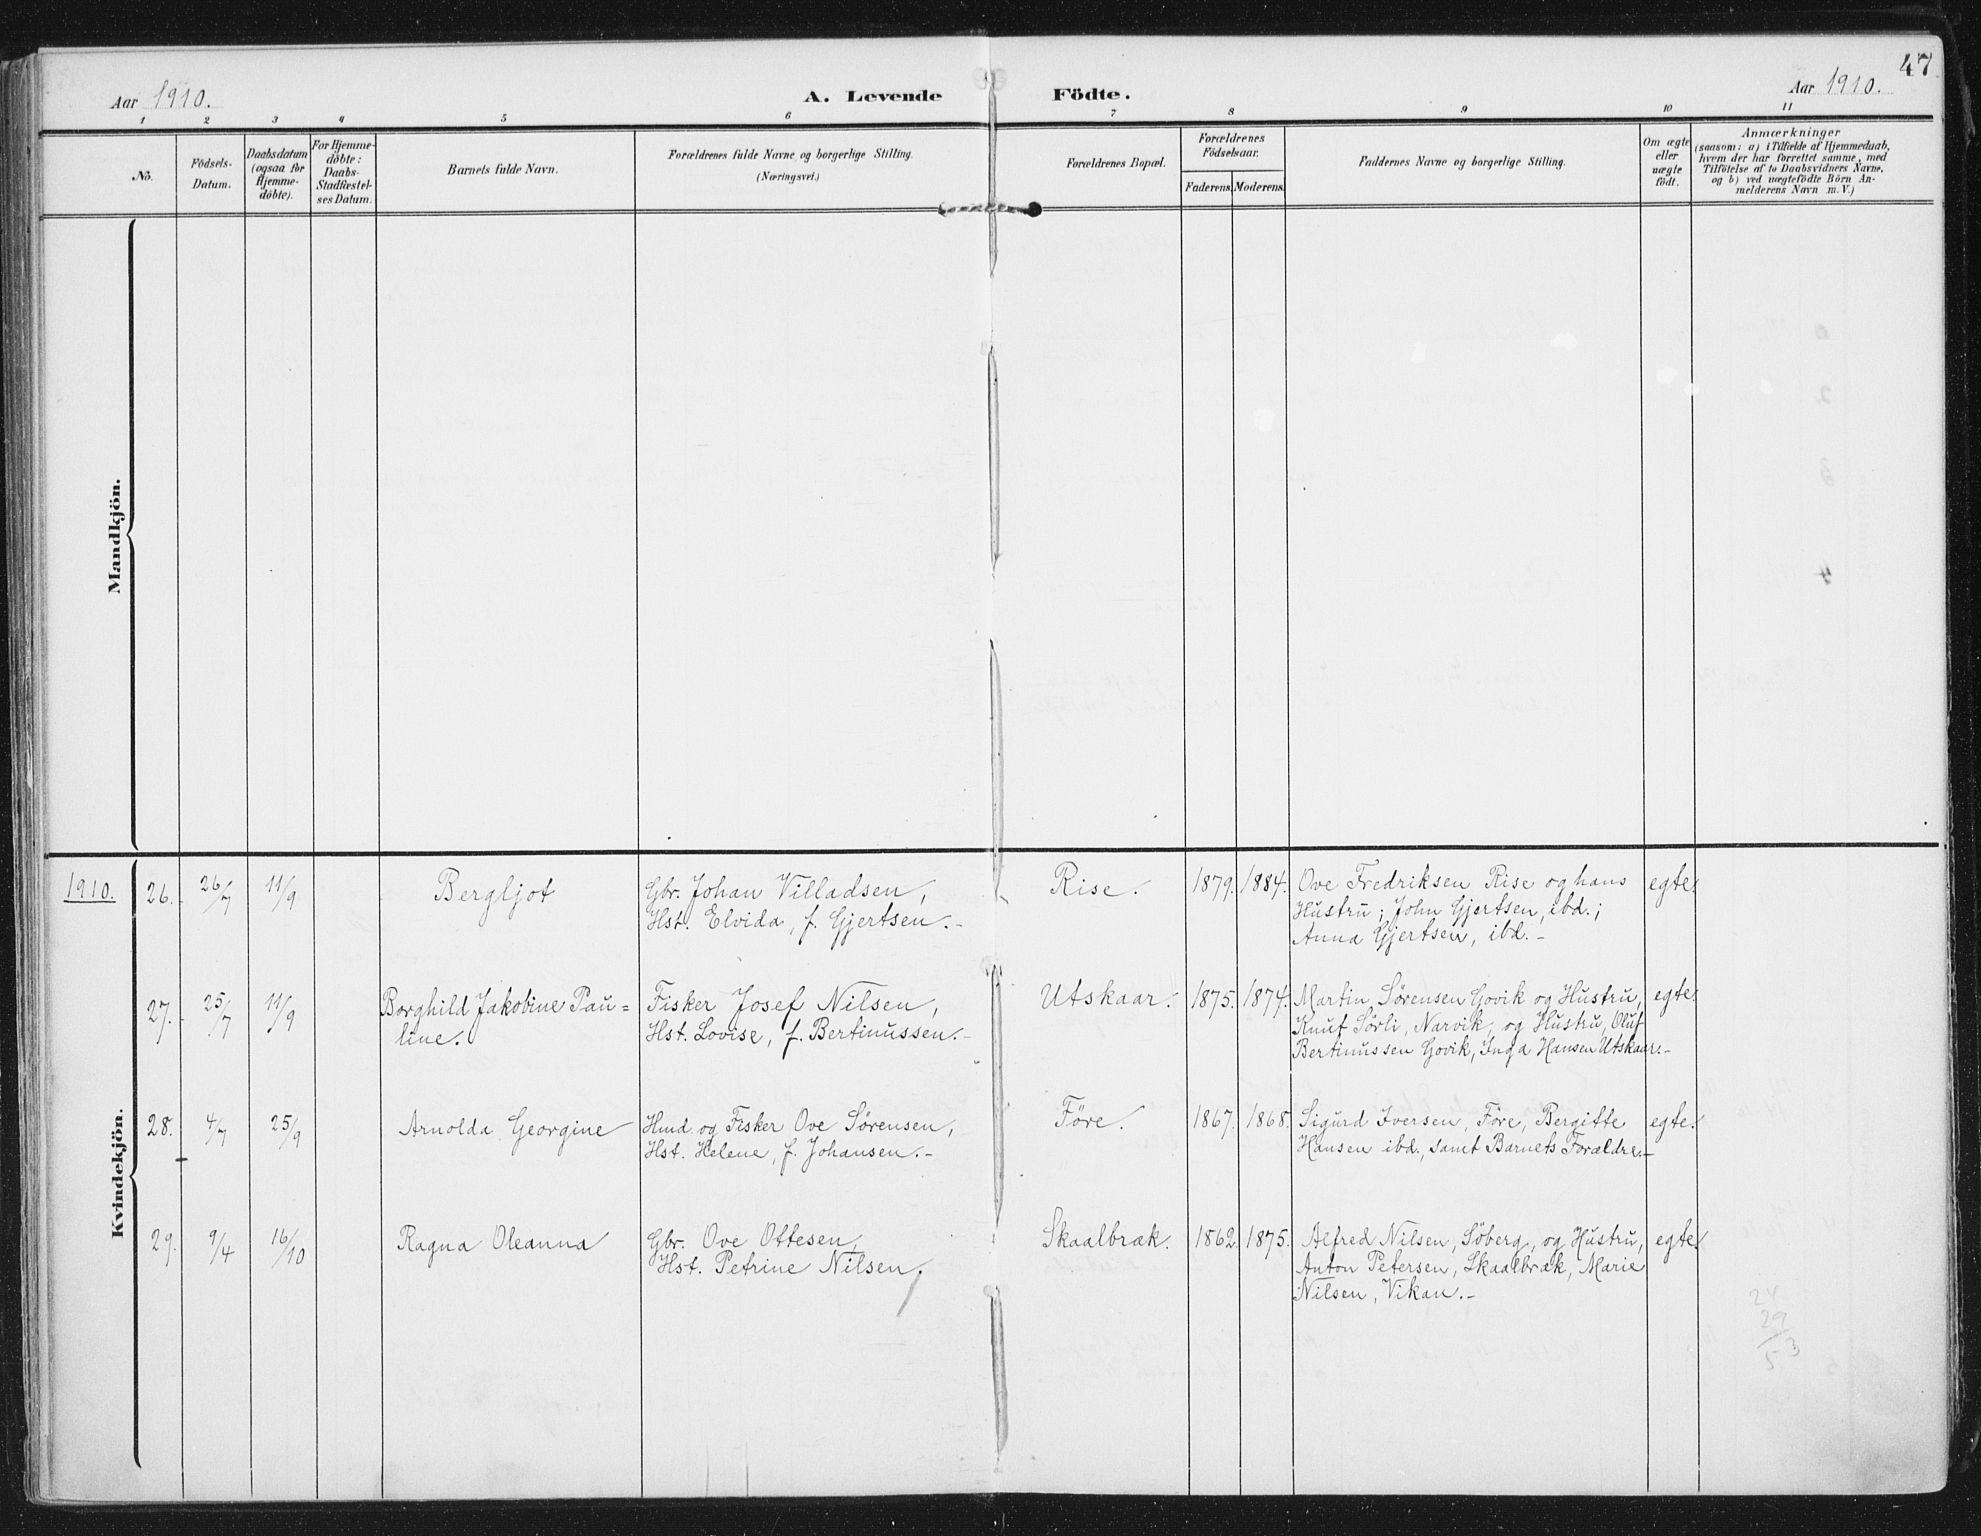 47
Aar 1910.
A. Levende Födte.
Aar 1910.
1 2 3 4 5 6 7 8 9 10 11
No.
Födsels-
Datum.
Daabsdatum
(ogsaa for
Hjemme-
döbte).
For Hjemme-
döbte:
Daabs-
Stadfæstel-
ses Datum.
Barnets fulde Navn.
Forældrenes fulde Navne og borgerlige Stilling.
(Næringsvei.)
Forældrenes Bopæl.
Forældrenes
Födselsaar.
Faderens. Moderens.
Faddernes Navne og borgerlige Stilling.
Om ægte
eller
uægte
födt.
Anmærkninger
(saasom: a) i Tilfælde af Hjemmedaab,
hvem der har forrettet samme, med
Tilföielse af to Daabsvidners Navne,
og b) ved uægtefödte Börn An-
melderens Navn m. V.)
Mandkjön.
Kvindekjön.
1910. 26. 26/7 11/9 Bergljot Gbr. Johan Villadsen, Rise. 1879. 1884. Ove Fredriksen Rise og hans egte.
Hst. Elvida, f. Gjertsen.- Hustru; John Gjertsen, ibd.;
Anna Gjertsen, ibd.-
27. 25/7 11/9 Borghild Jakobine Pau= Fisker Josef Nilsen, Utskaar. 1875. 1874. Martin Sørensen Govik og Hustru, egte.
line. Hst. Lovise, f. Bertinussen.- Knut Sørli, Narvik, og Hustru, Oluf
Bertinussen Govik, Inga Hansen Utskaar.-
28. 4/7 25/9 Arnolda Georgine Hmd. og Fisker Ove Sørensen, Føre. 1867. 1868. Sigurd Iversen, Føre, Bergitte egte.
Hst. Helene, f. Johansen.- Hansen ibd., samt Barnets Forældre.-
29. 9/4 16/10 Ragna Oleanna Gbr. Ove Ottesen, Skaalbræk. 1862. 1875. Alfred Nilsen, Søberg, og Hustru, egte.
Hst. Petrine Nilsen. Anton Petersen, Skaalbræk, Marie
Nilsen, Vikan.-
24
29
53